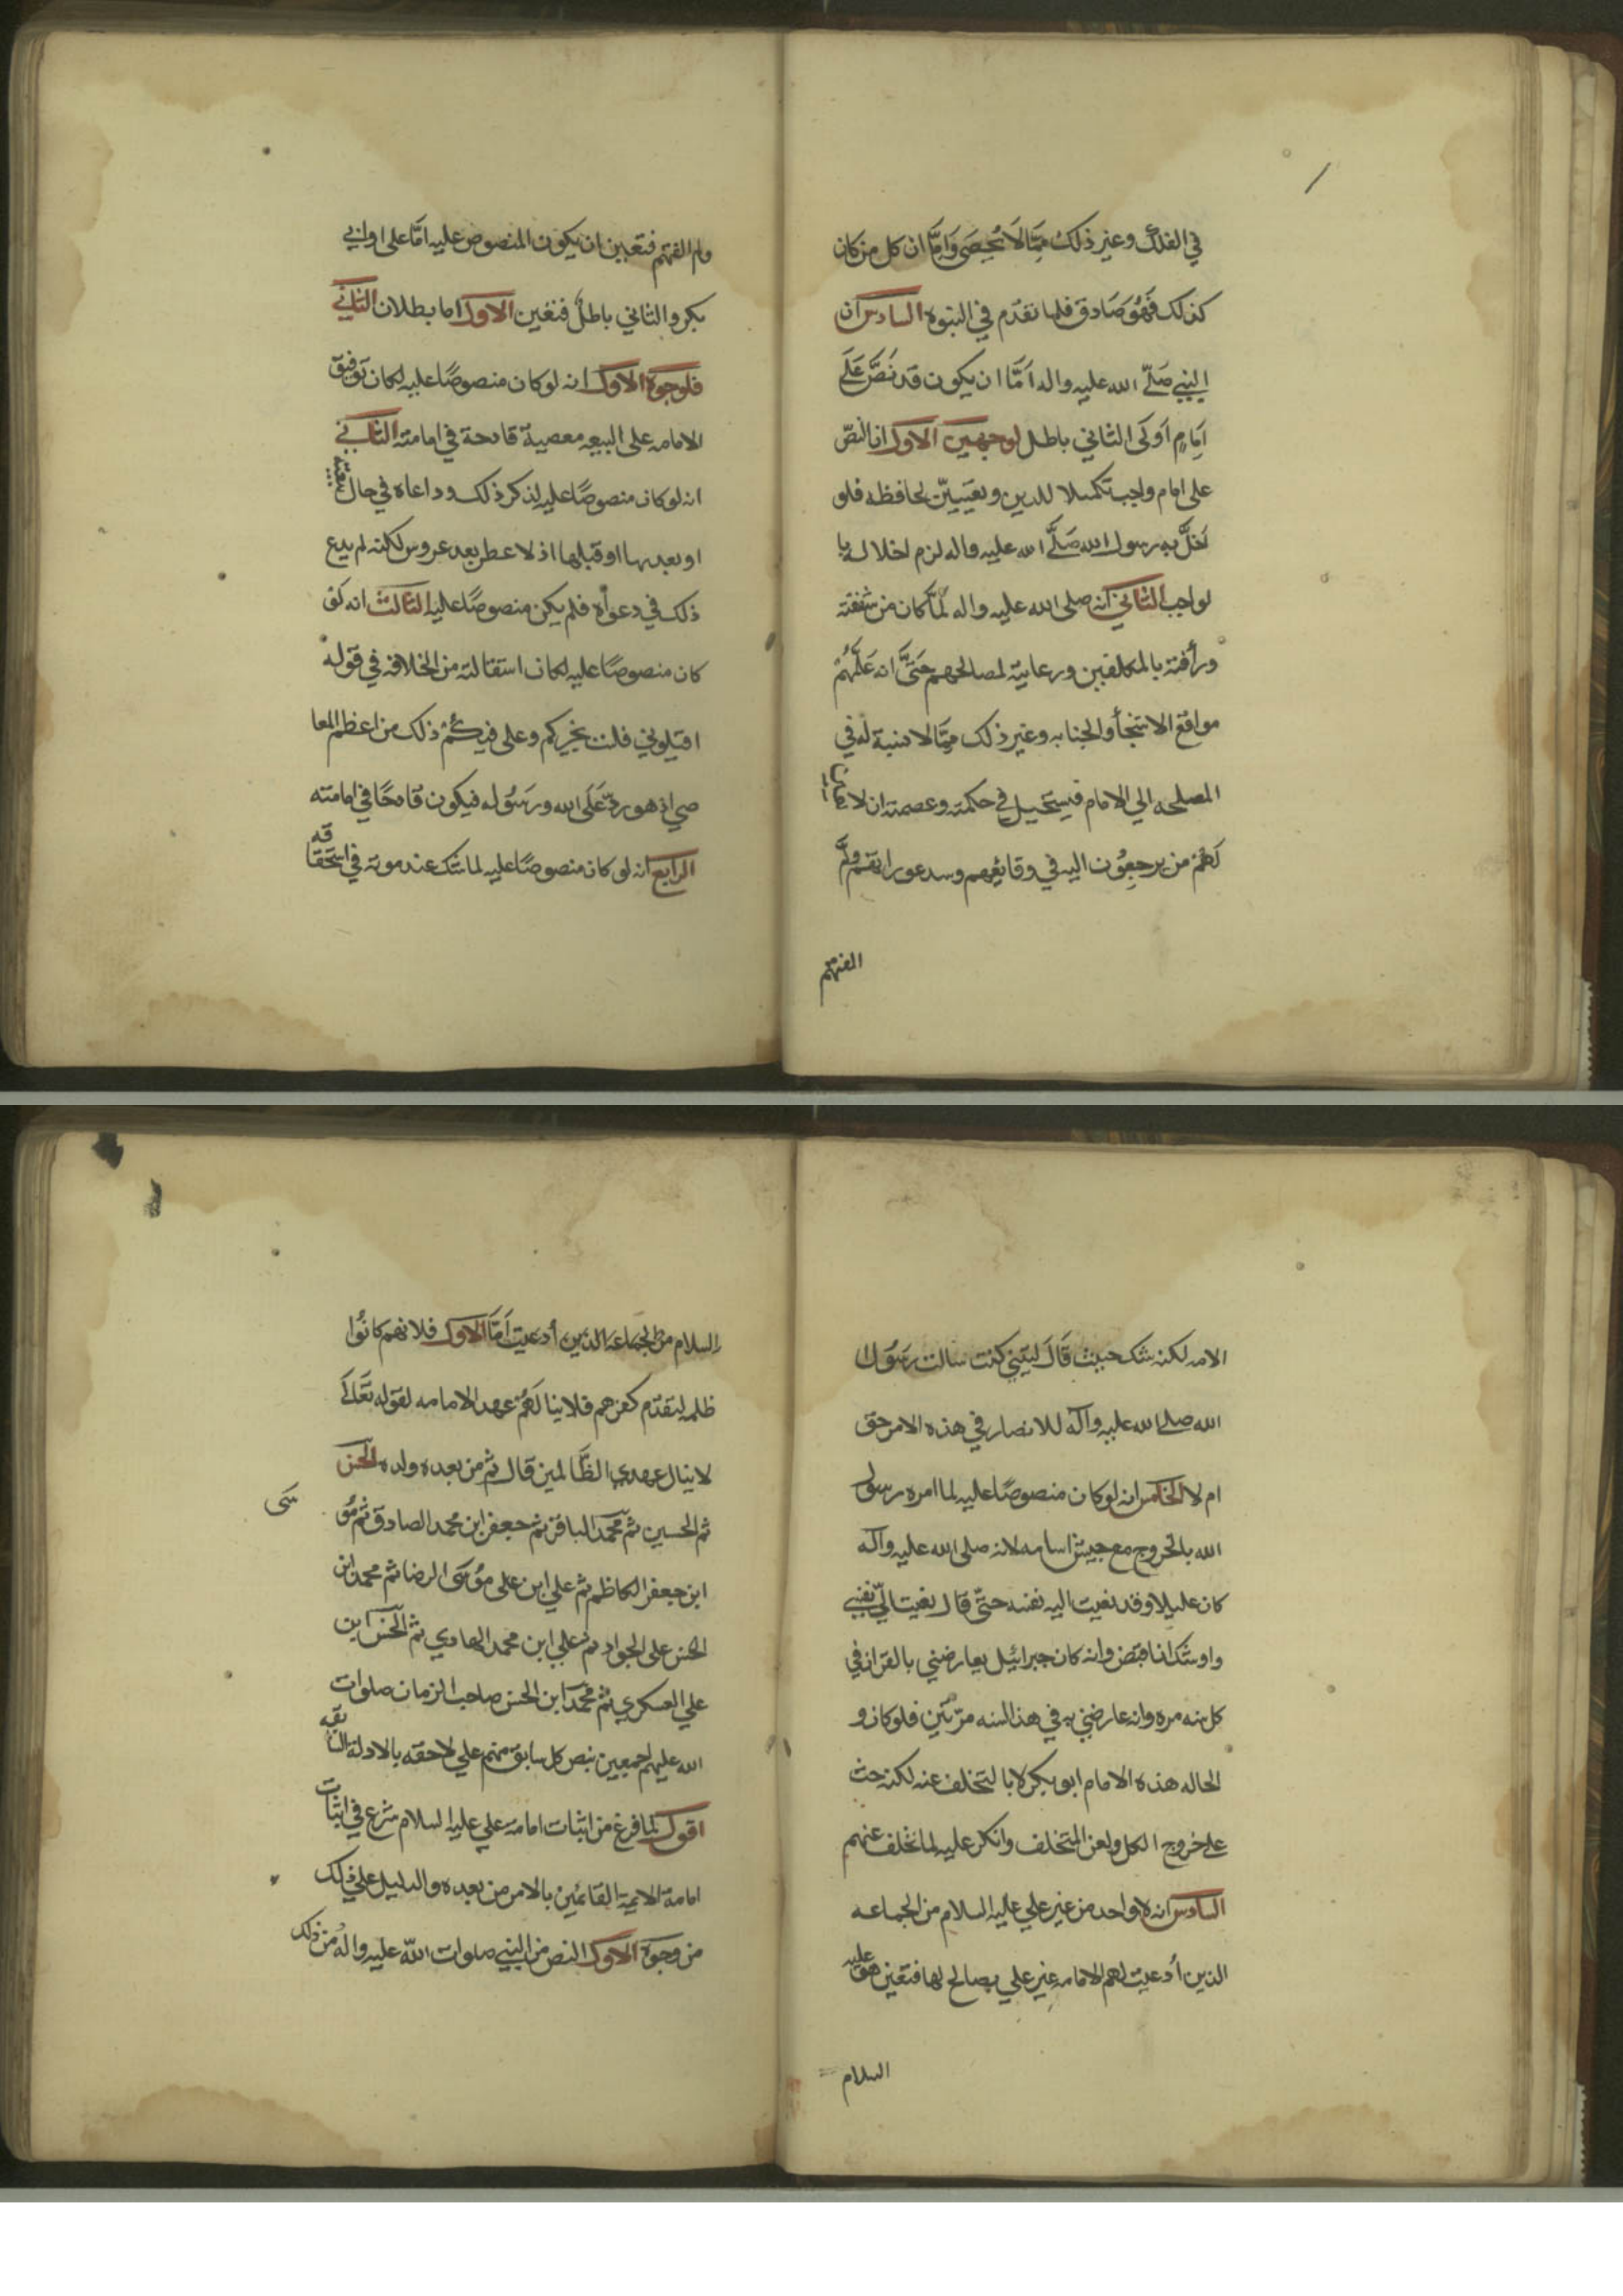 في الفلك وغير ذلك ممّا لا يُحصَى وَامَّا ان كل من كان
كذلك فَهُوَ صَادق فلما تقدّم في النبوه السادس ان
النبي صَلّى الله عليه واله اَمَّا ان يكون قد نَصَّ عَلَى
اِمَامٍ اَو لا والثاني باطل لوجهين الاول ان النصّ
على امام واجب تكميلا للدين وتعيينّ لحافظه فلو
اَخلَّ به رسول الله صَلَّى الله عليه واله لزم اخلاله با
لواجب الثاني انه صلى الله عليه واله لمَّا كان من شفقته
ورأفته بالمكلفين ورعايته لمصالحهم حَتىَّ انه عَلَّمَهُمْ
مواقع الاستنجأ والجنابه وغير ذلك ممَّا لا نسبة له في
المصلحه الي الامام فيستحيل في حكمته وعصمته ان لا
لَهُمْ من يرجعُون اليه في وقايعهم وسد عوراتهم ولمّ
الفتهم
ولم الفتهم فتعين ان يكون المنصوص عليه امَّا على او ابي
بكر والثاني باطلٌ فتعين الاول اما بطلان الثاني
فلوجوه الاول انه لو كان منصوصًا عليه لكان توفيق
الامامه على البيعه معصيةً قادحة في امامته الثاني
انه لو كان منصوصًا عليه لذكر ذلك وداعاه في حال
او بعدها او قبلها اذ لا عطر بعد عروس لكنه لم يدع
ذلك في دعوأه فلم يكن منصوصًا عليه الثالث انه لو
كان منصوصًا عليه لكان استقالته من الخلافه في قوله
اقيلوني فلت بخيركم وعلى فيكُمْ ذلك من اعظم المعا
صي اذ هو ردّ عَلَى الله ورسُوله فيكون قادحًا في امامته
الرابع انه لو كان منصوصًا عليه لما شك عند موته في استحقاقه
الامه لكنه شك حيث قَالَ ليتني كنت سالت رسُول
الله صلى الله عليه وآله للانصار في هذه الامر حق
ام لا الخامس انه لو كان منصوصًا عليه لما امره رسول
الله بالخروج مع جيش اسامه لانه صلى الله عليه وآله
كان عليلا وقد نعيت اليه نفسه حتّى قال نعيت اليّ نفسي
واوشك ان اقبض وانه كان جبرائيل يعارضني بالقران في
كل سنه مره وانه عارضني به في هذ السنه مرّتَين فلو كان و
الحاله هذه الامام ابو بكر لا با لتخلف عنه لكنه حث
على خروج الكل ولعن المتخلف وانكر عليه لما تخلف عنهم
السادس انه لا واحد من غير علي عليه السلام من الجماعه
الذين أدعيت لهم الامامه غير علي بصالح لها فتعين هو عليه
السلام
السلام من الجماعه الذين أدعيت اَمَّا الاول فلانهم كانُوا
ظلمه لتقدّم كفرهم فلا ينالَهُمْ عهد الامامه لقوله تعَالَى
لا ينال عهدي الظَّالمين قال ثم من بعده ولده الحسن
ثم الحسين ثم محمد الباقر ثم جعفر ابن محمد الصادق ثم مُو
سَى
ابن جعفر الكاظم ثم علي ابن على مُوسَى الرضا ثم محمد ابن
الحسن على الجواد ثم علي ابن محمد الهادي ثم الحسن ابن
علي العسكري ثم محمدَ ابن الحسن صاحب الزمان صلوات
الله عليهم اجمعين بنص كل سابق منهم علي لاحقه بالادلة السابقه
اقول لما فرغ من اثبات امامة علي عليه السلام شرع في اثبات
امامة الايمة القائمين بالامر من بعده والدليل علي ذلك
من وجوه الاول النص من النبي صلوات الله عليه واله من ذلك